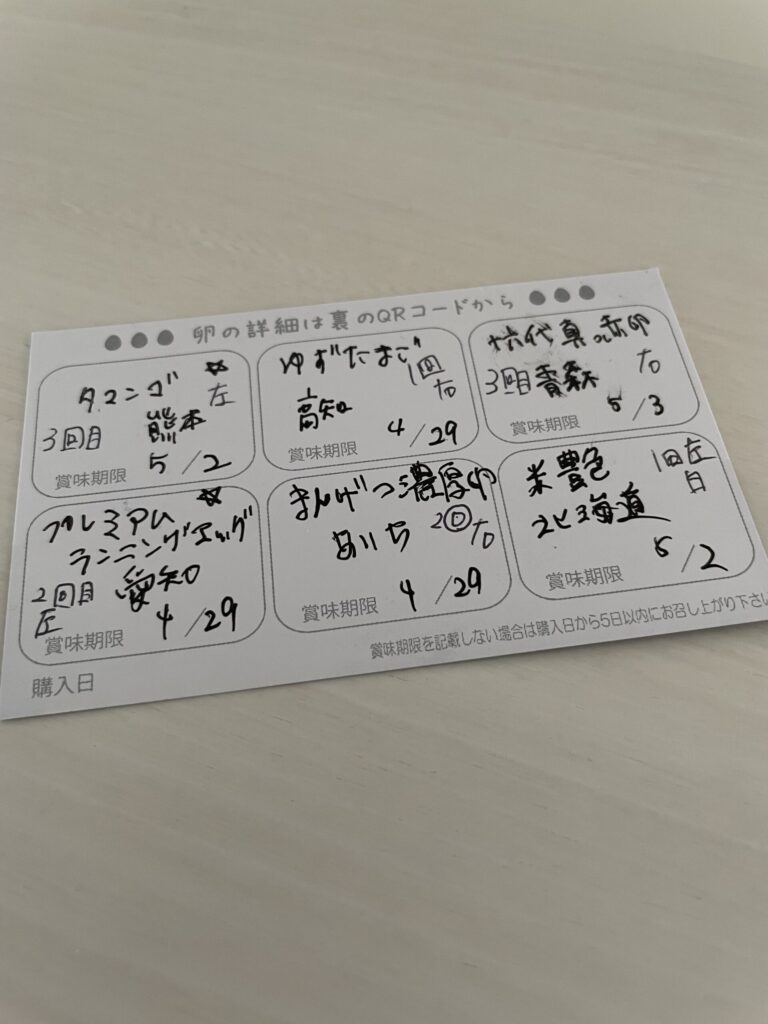 ●●● 卵の詳細は裏のQRコードから ●●●
タマンゴ ☆
左
3回目 熊本
賞味期限 5/2
ゆずたまご
1回
高知 右
賞味期限 4/29
六代真っ赤卵
3回目 青森 右
賞味期限 5/3
プレミアム ☆
ランニングエッグ
2回目 愛知
左
賞味期限 4/29
まんげつ濃厚卵
あいち 2回 右
賞味期限 4/29
米艶色 1回左
北海道 白
賞味期限 5/2
賞味期限を記載しない場合は購入日から5日以内にお召し上がり下さい
購入日